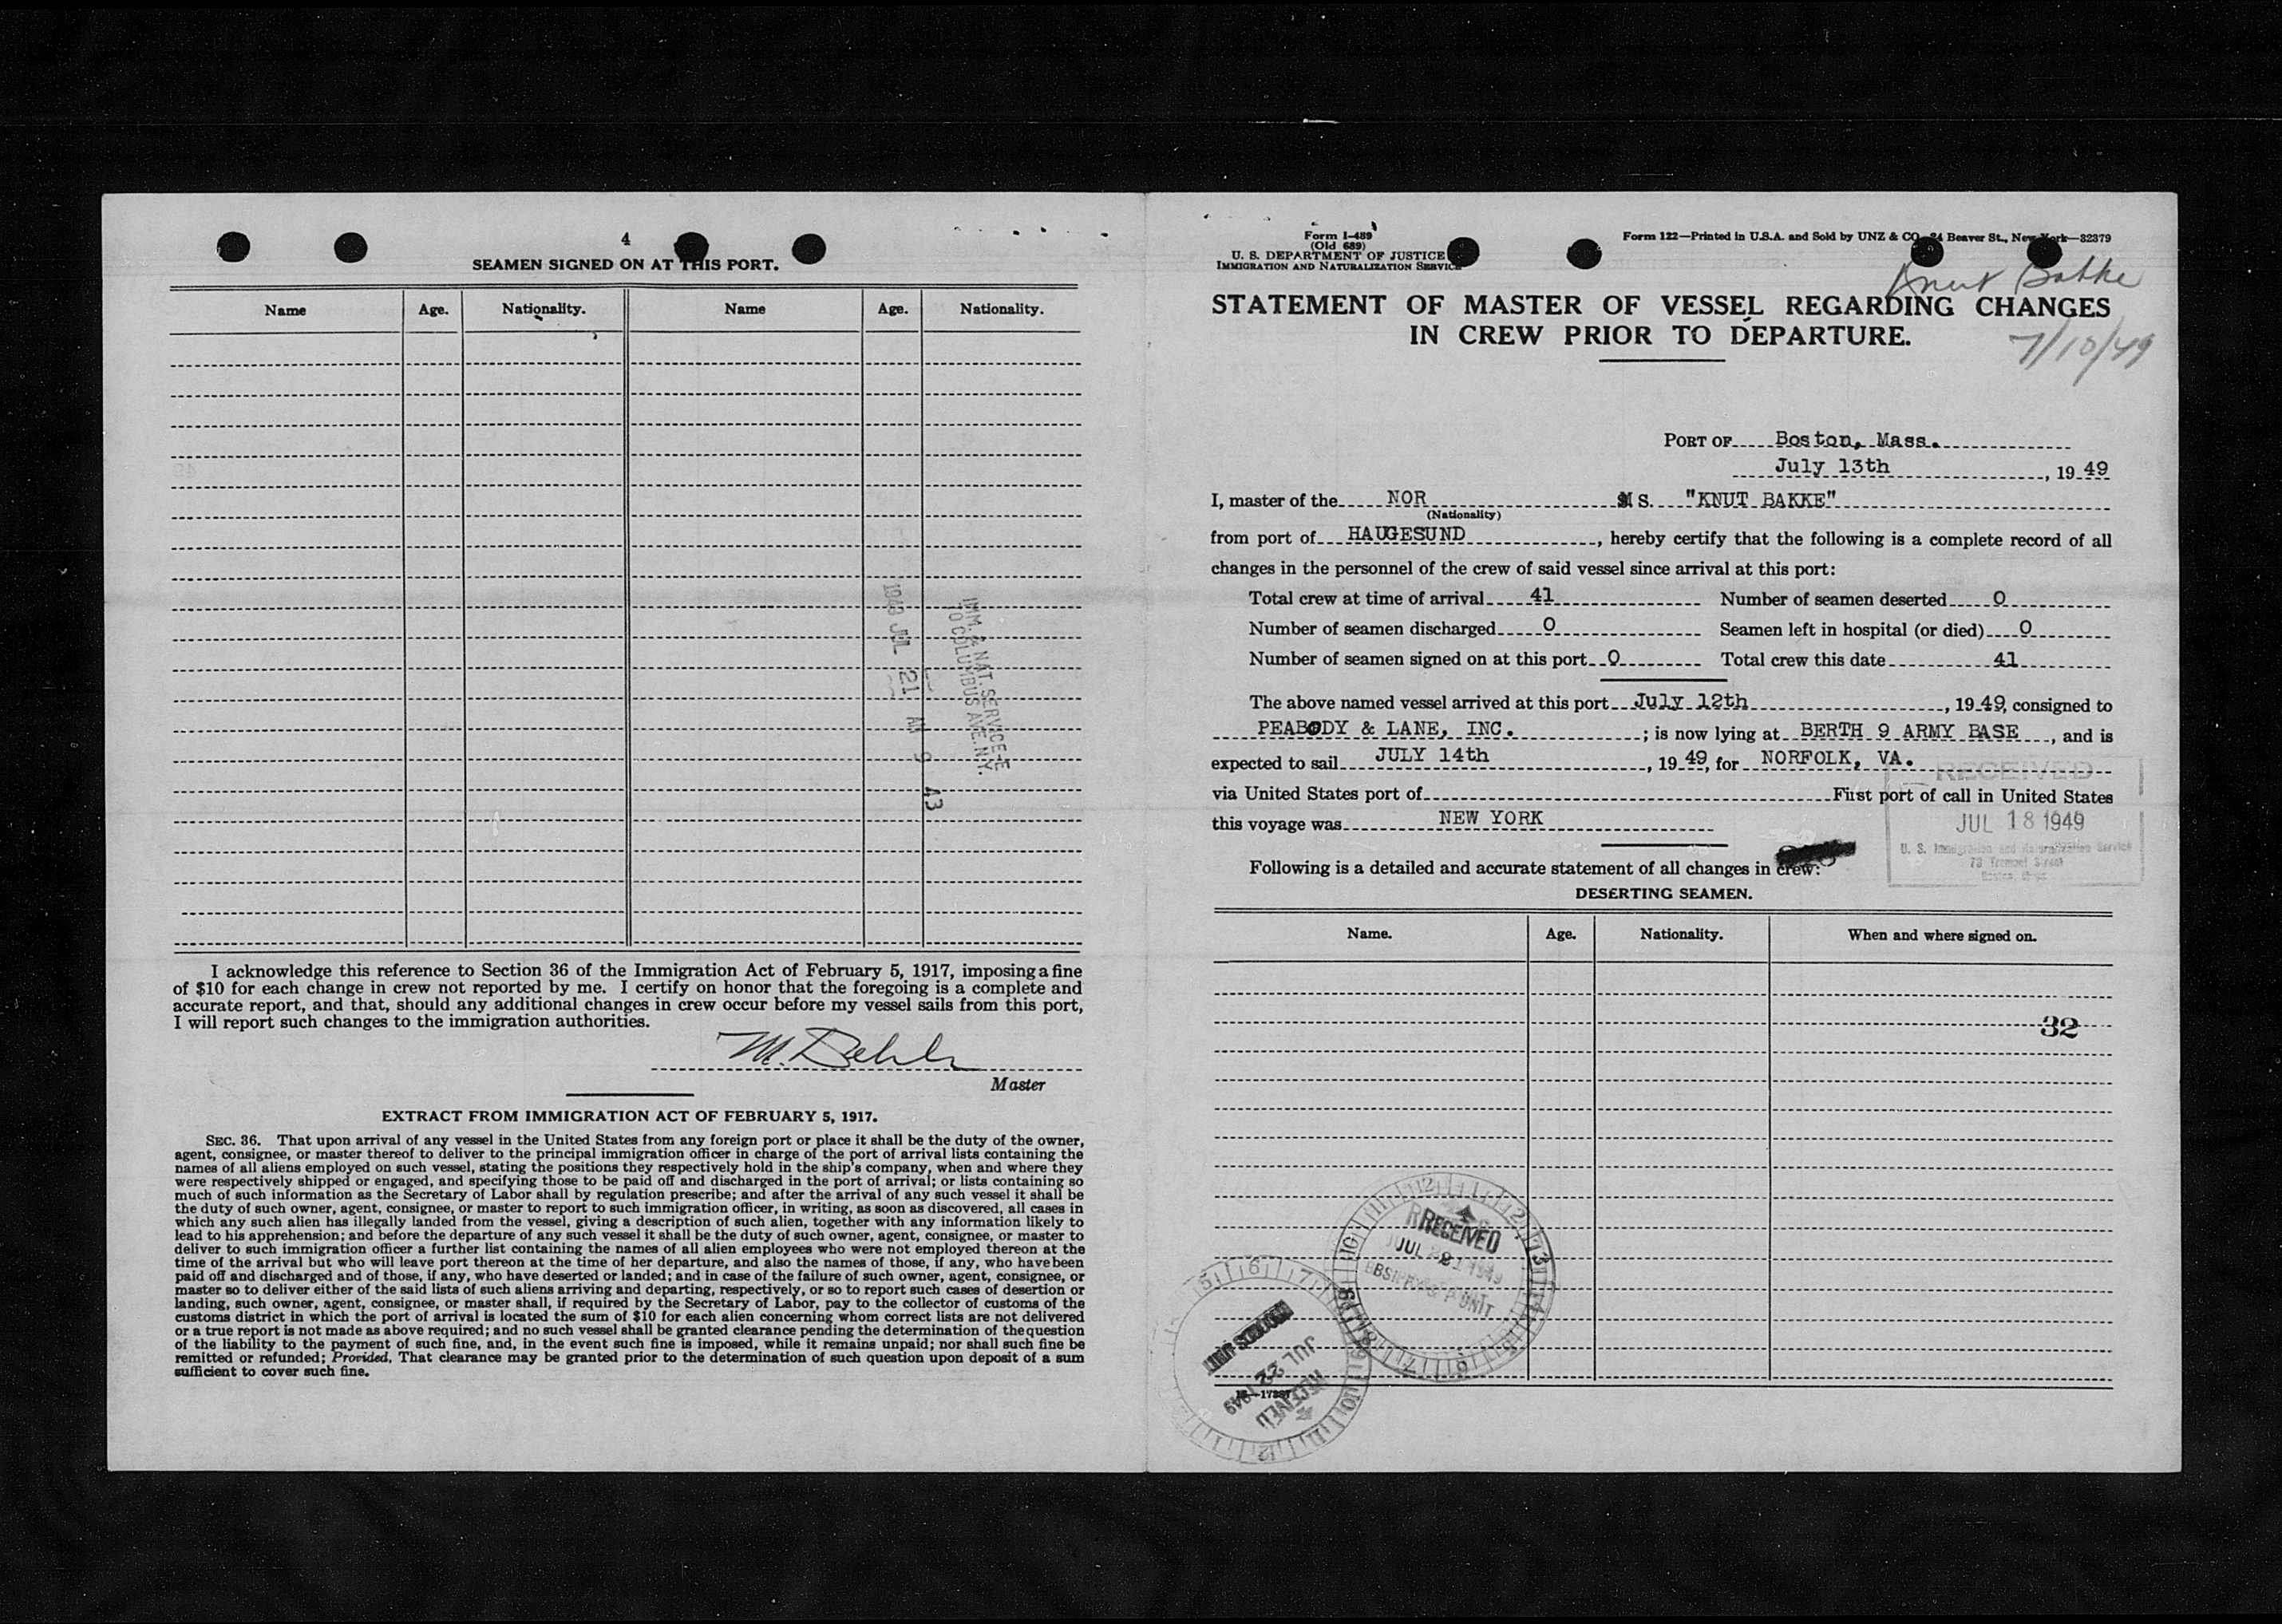 4
SEAMEN SIGNED ON AT THIS PORT.
Name Age. Nationality. Name Age. Nationality.
IMM. & NAT. SERVICE-E
70 COLUMBUS AVE. N.Y.
JUL 21 AM 9 43
I acknowledge this reference to Section 36 of the Immigration Act of February 5, 1917, imposing a fine
of $10 for each change in crew not reported by me. I certify on honor that the foregoing is a complete and
accurate report, and that, should any additional changes in crew occur before my vessel sails from this port,
I will report such changes to the immigration authorities.
Master
EXTRACT FROM IMMIGRATION ACT OF FEBRUARY 5, 1917.
SEC. 36. That upon arrival of any vessel in the United States from any foreign port or place it shall be the duty of the owner,
agent, consignee, or master thereof to deliver to the principal immigration officer in charge of the port of arrival lists containing the
names of all aliens employed on such vessel, stating the positions they respectively hold in the ship's company, when and where they
were respectively shipped or engaged, and specifying those to be paid off and discharged in the port of arrival; or lists containing so
much of such information as the Secretary of Labor shall by regulation prescribe; and after the arrival of any such vessel it shall be
the duty of such owner, agent, consignee, or master to report to such immigration officer, in writing, as soon as discovered, all cases in
which any such alien has illegally landed from the vessel, giving a description of such alien, together with any information likely to
lead to his apprehension; and before the departure of any such vessel it shall be the duty of such owner, agent, consignee, or master to
deliver to such immigration officer a further list containing the names of all alien employees who were not employed thereon at the
time of the arrival but who will leave port thereon at the time of her departure, and also the names of those, if any, who have been
paid off and discharged and of those, if any, who have deserted or landed; and in case of the failure of such owner, agent, consignee, or
master so to deliver either of the said lists of such aliens arriving and departing, respectively, or so to report such cases of desertion or
landing, such owner, agent, consignee, or master shall, if required by the Secretary of Labor, pay to the collector of customs of the
customs district in which the port of arrival is located the sum of $10 for each alien concerning whom correct lists are not delivered
or a true report is not made as above required; and no such vessel shall be granted clearance pending the determination of the question
of the liability to the payment of such fine, and, in the event such fine is imposed, while it remains unpaid; nor shall such fine be
remitted or refunded; Provided, That clearance may be granted prior to the determination of such question upon deposit of a sum
sufficient to cover such fine.
Form I-489
(Old 689)
U. S. DEPARTMENT OF JUSTICE
IMMIGRATION AND NATURALIZATION SERVICE
Form 122—Printed in U.S.A. and Sold by UNZ & CO. 24 Beaver St., New York—32379
Knut Bakke
STATEMENT OF MASTER OF VESSEL REGARDING CHANGES
IN CREW PRIOR TO DEPARTURE.
7/10/49
PORT OF Boston, Mass.
July 13th, 1949
I, master of the NOR MS. "KNUT BAKKE"
(Nationality)
from port of HAUGESUND, hereby certify that the following is a complete record of all
changes in the personnel of the crew of said vessel since arrival at this port:
Total crew at time of arrival 41 Number of seamen deserted 0
Number of seamen discharged 0 Seamen left in hospital (or died) 0
Number of seamen signed on at this port 0 Total crew this date 41
The above named vessel arrived at this port July 12th, 1949, consigned to
PEABODY & LANE, INC.; is now lying at BERTH 9 ARMY BASE, and is
expected to sail JULY 14th, 1949, for NORFOLK, VA.
via United States port of First port of call in United States
this voyage was NEW YORK
RECEIVED
JUL 18 1949
U. S. Immigration and Naturalization Service
Following is a detailed and accurate statement of all changes in crew:
DESERTING SEAMEN.
Name. Age. Nationality. When and where signed on.
32
RECEIVED
JUL
UNIT
RECEIVED
JUL 22 1949